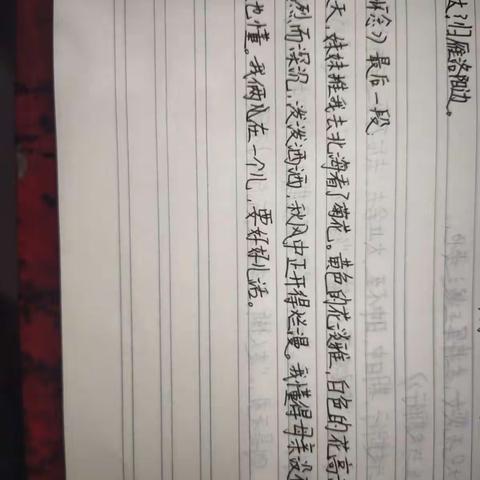 达？归雁洛阳边。
怀念》最后一段
天，妹妹推我去北海看了菊花。黄色的花淡雅，白色的花高
烈而深沉，泼泼洒洒，秋风中正开得烂漫。我懂得母亲没
也懂。我俩儿在一个儿，要好好儿活。